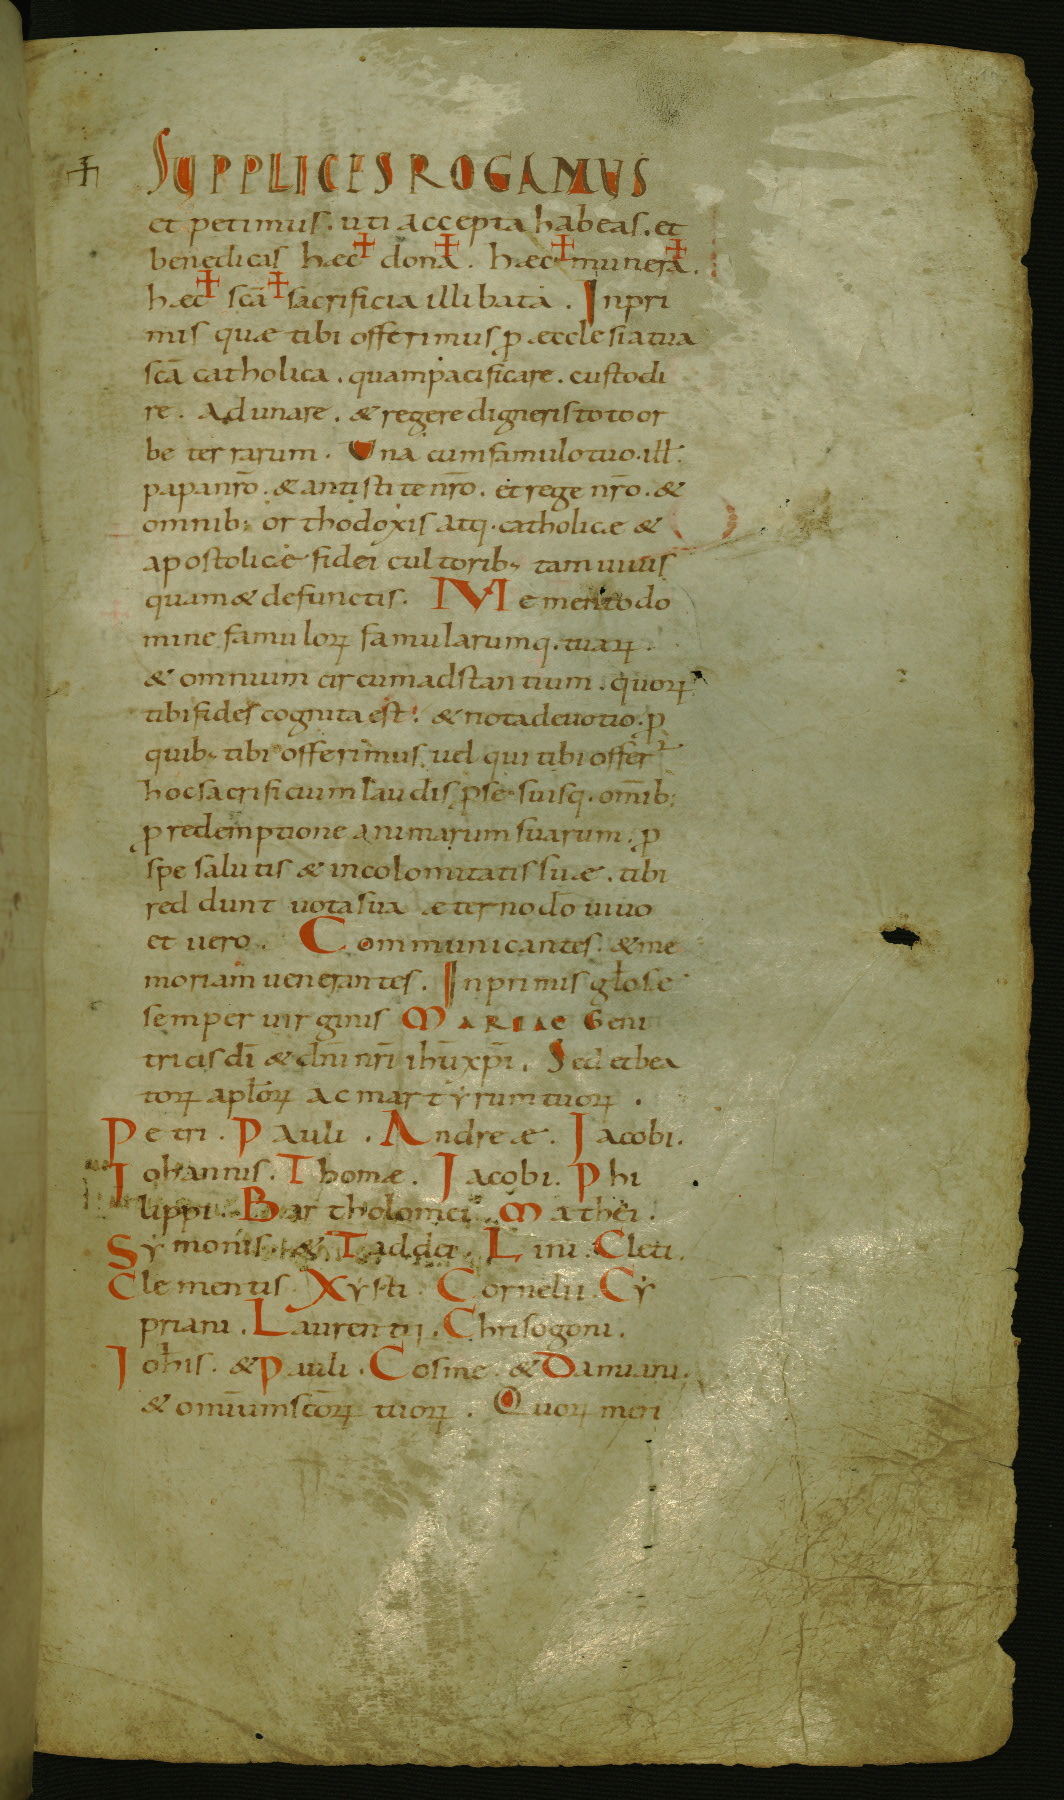 SUPPLICES ROGAMUS
et petimus. uti accepta habeas. et
benedicas haec ✝ dona ✝. haec ✝ munera ✝.
haec ✝ scā ✝ sacrificia illibata. Inpri
mis quae tibi offerimus ꝓ aecclesia tua
scā catholica. quam pacificare. custodi
re. Adunare. & regere digneris toto or
be terrarum. Una cum famulo tuo. ill̄.
papa nr̄o. & antistite nr̄o. et rege nr̄o. &
omnib; orthodoxis atq. catholicae &
apostolicae fidei cultorib; tam uiuis
quam & defunctis. Memento do
mine famuloꝝ famularumq. tuaꝝ.
& omnium circum adstantium. quoꝝ
tibi fides cognita est. & nota deuotio. ꝓ
quib; tibi offerimus uel qui tibi offer̄
hoc sacrificium laudis ꝓ se suisq. om̄ib;
ꝓ redemptione animarum suarum. ꝓ
spe salutis & incolomitatis suae. tibi
reddunt uota sua aeterno dō uiuo
et uero. Communicantes. & me
moriam uenerantes. Inprimis glōse
semper uirginis MARIAE Geni
tricis dī & dn̄i nr̄i ihū xp̄i. Sed et bea
toꝝ apl̄oꝝ ac martyrum tuoꝝ.
Petri. Pauli. Andreae. Jacobi.
Iohannis. Thomae. Jacobi. Phi
lippi. Bartholomei. Mathei.
Symonis. & Taddei. Lini. Cleti.
Clementis. Xysti. Cornelii. Cy
priani. Laurentii. Chrisogoni.
Ioh̄is. & Pauli. Cosme. & Damiani.
& om̄ium sc̄oꝝ tuoꝝ. Quoꝝ meri